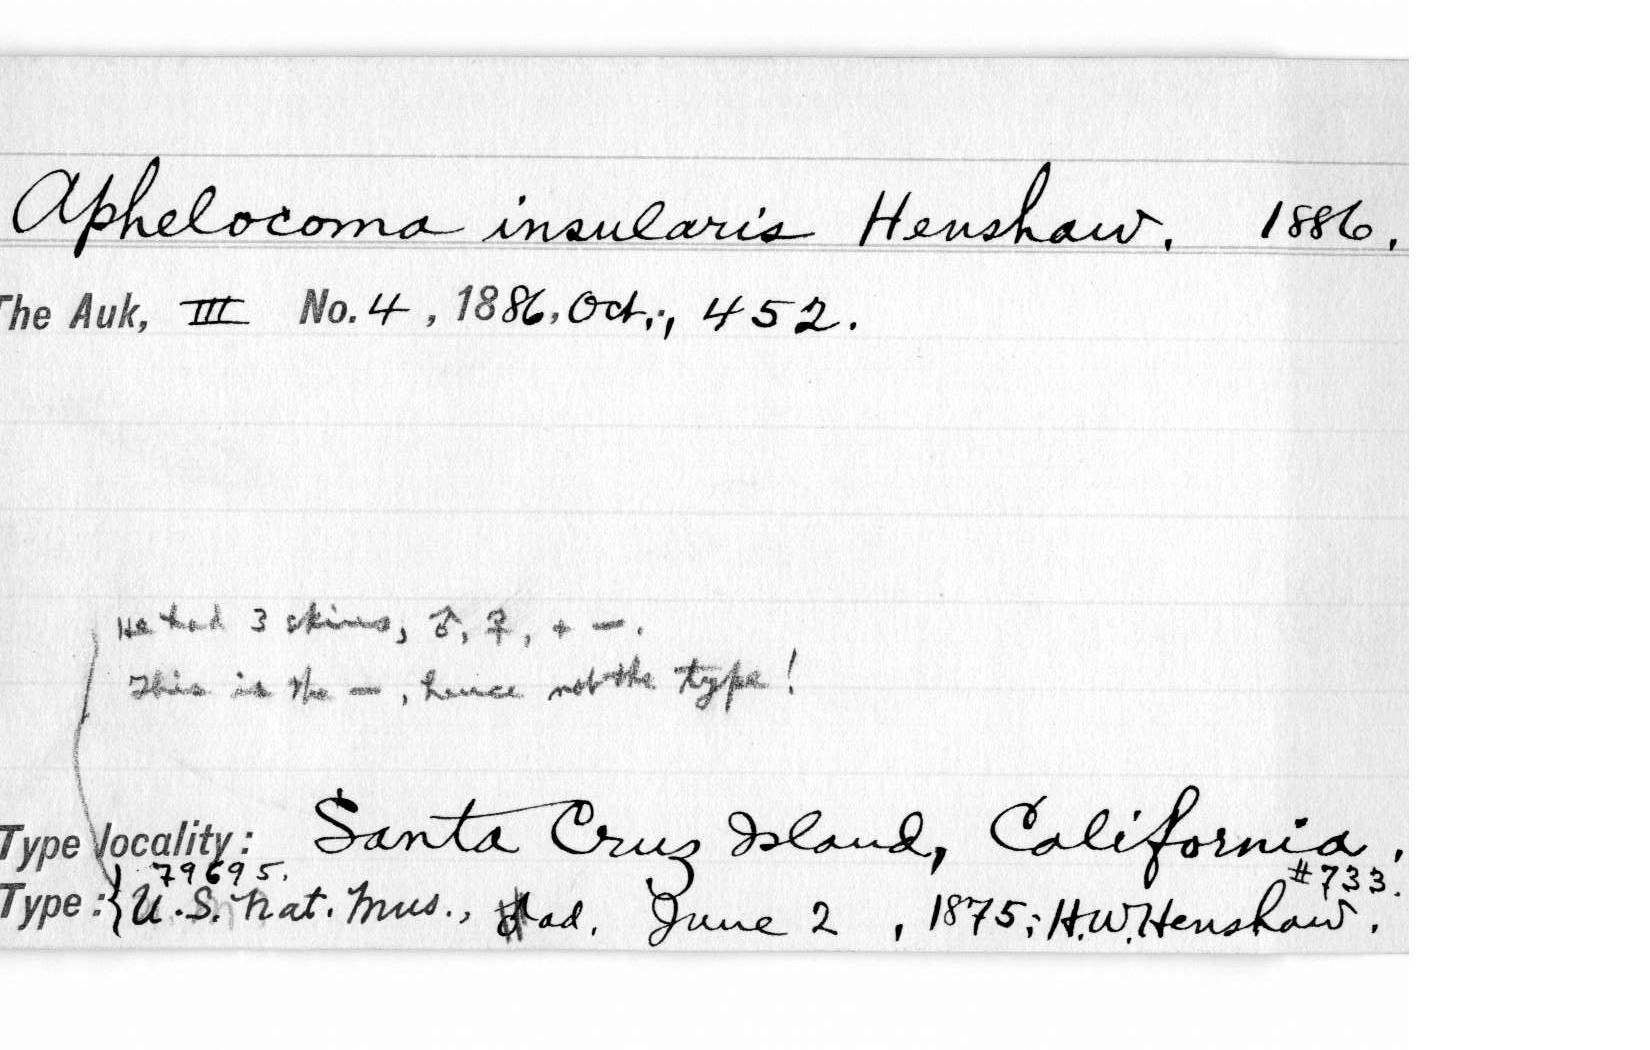 Aphelocoma insularis Henshaw. 1886.
The Auk, III No. 4, 1886, Oct., 452.
He had 3 skins, ♂, ♀, + —.
This is the —, hence not the type!
Type locality: Santa Cruz Island, California.
79695. #733.
Type: {U.S. Nat. Mus., ad. June 2, 1875; H.W. Henshaw.